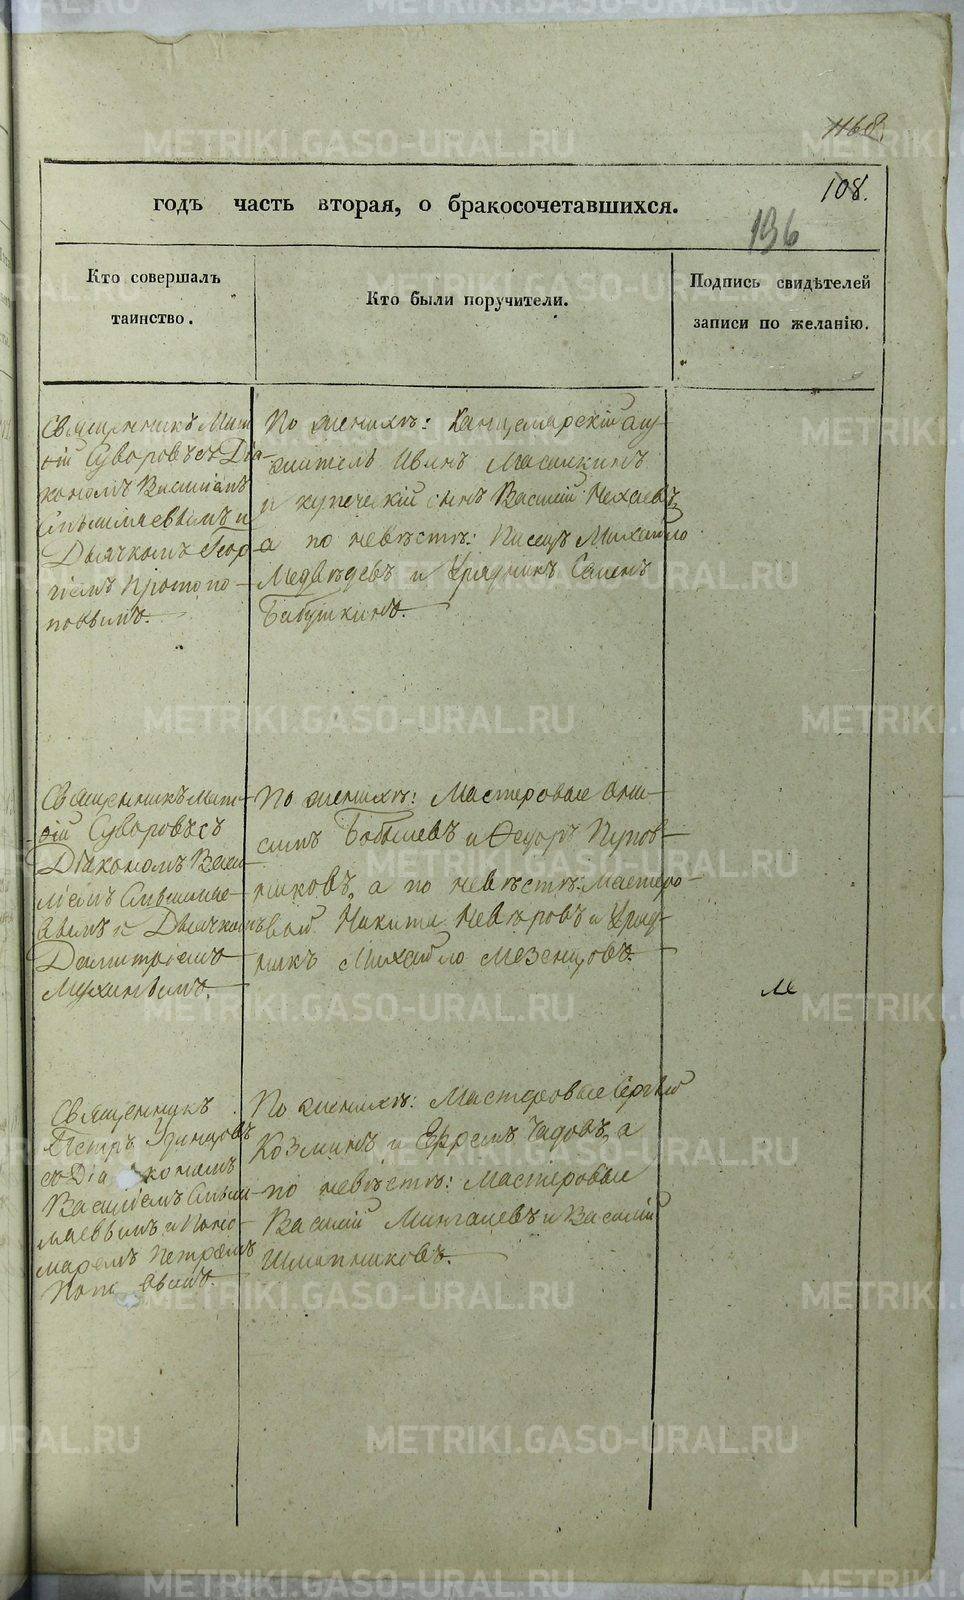 1168.
108.
годъ часть вторая, о бракосочетавшихся.
196
Кто совершалъ
таинство.
Кто были поручители.
Подпись свидѣтелей
записи по желанію.
Священникъ Мат
ѳій Суворовъ съ Діа-
кономъ Василіемъ
Смышляевымъ и
Дьячкомъ Геор
гіемъ Протопо-
повымъ.
По женихѣ: Канцелярскій слу
житель Иванъ Масалкинъ
и купеческій сынъ Василій Нехаевъ,
а по невѣстѣ: Писецъ Михайло
Медвѣдевъ и Урядникъ Семенъ
Бабушкинъ.
Священникъ Мат-
ѳій Суворовъ съ
Діакономъ Васи
ліемъ Смышляе-
вымъ и Дьячкомъ
Димитріемъ
По женихѣ: Мастеровые Они-
симъ Бабылевъ и Ѳедоръ Пупов-
никовъ, а по невѣстѣ: Мастеро-
вой Никита Невѣровъ и Уряд-
никъ Михайло Мезенцовъ.
Священникъ
Петръ Удинцовъ
съ Діакономъ
Василіемъ Смыш-
ляевымъ и Поно-
маремъ Петромъ
По женихѣ: Мастеровые Сергѣй
Козминъ и Ефремъ Чадовъ, а
по невѣстѣ: Мастеровые
Василій Мингалевъ и Василій
Шляпниковъ.
METRIKI.GASO-URAL.RU